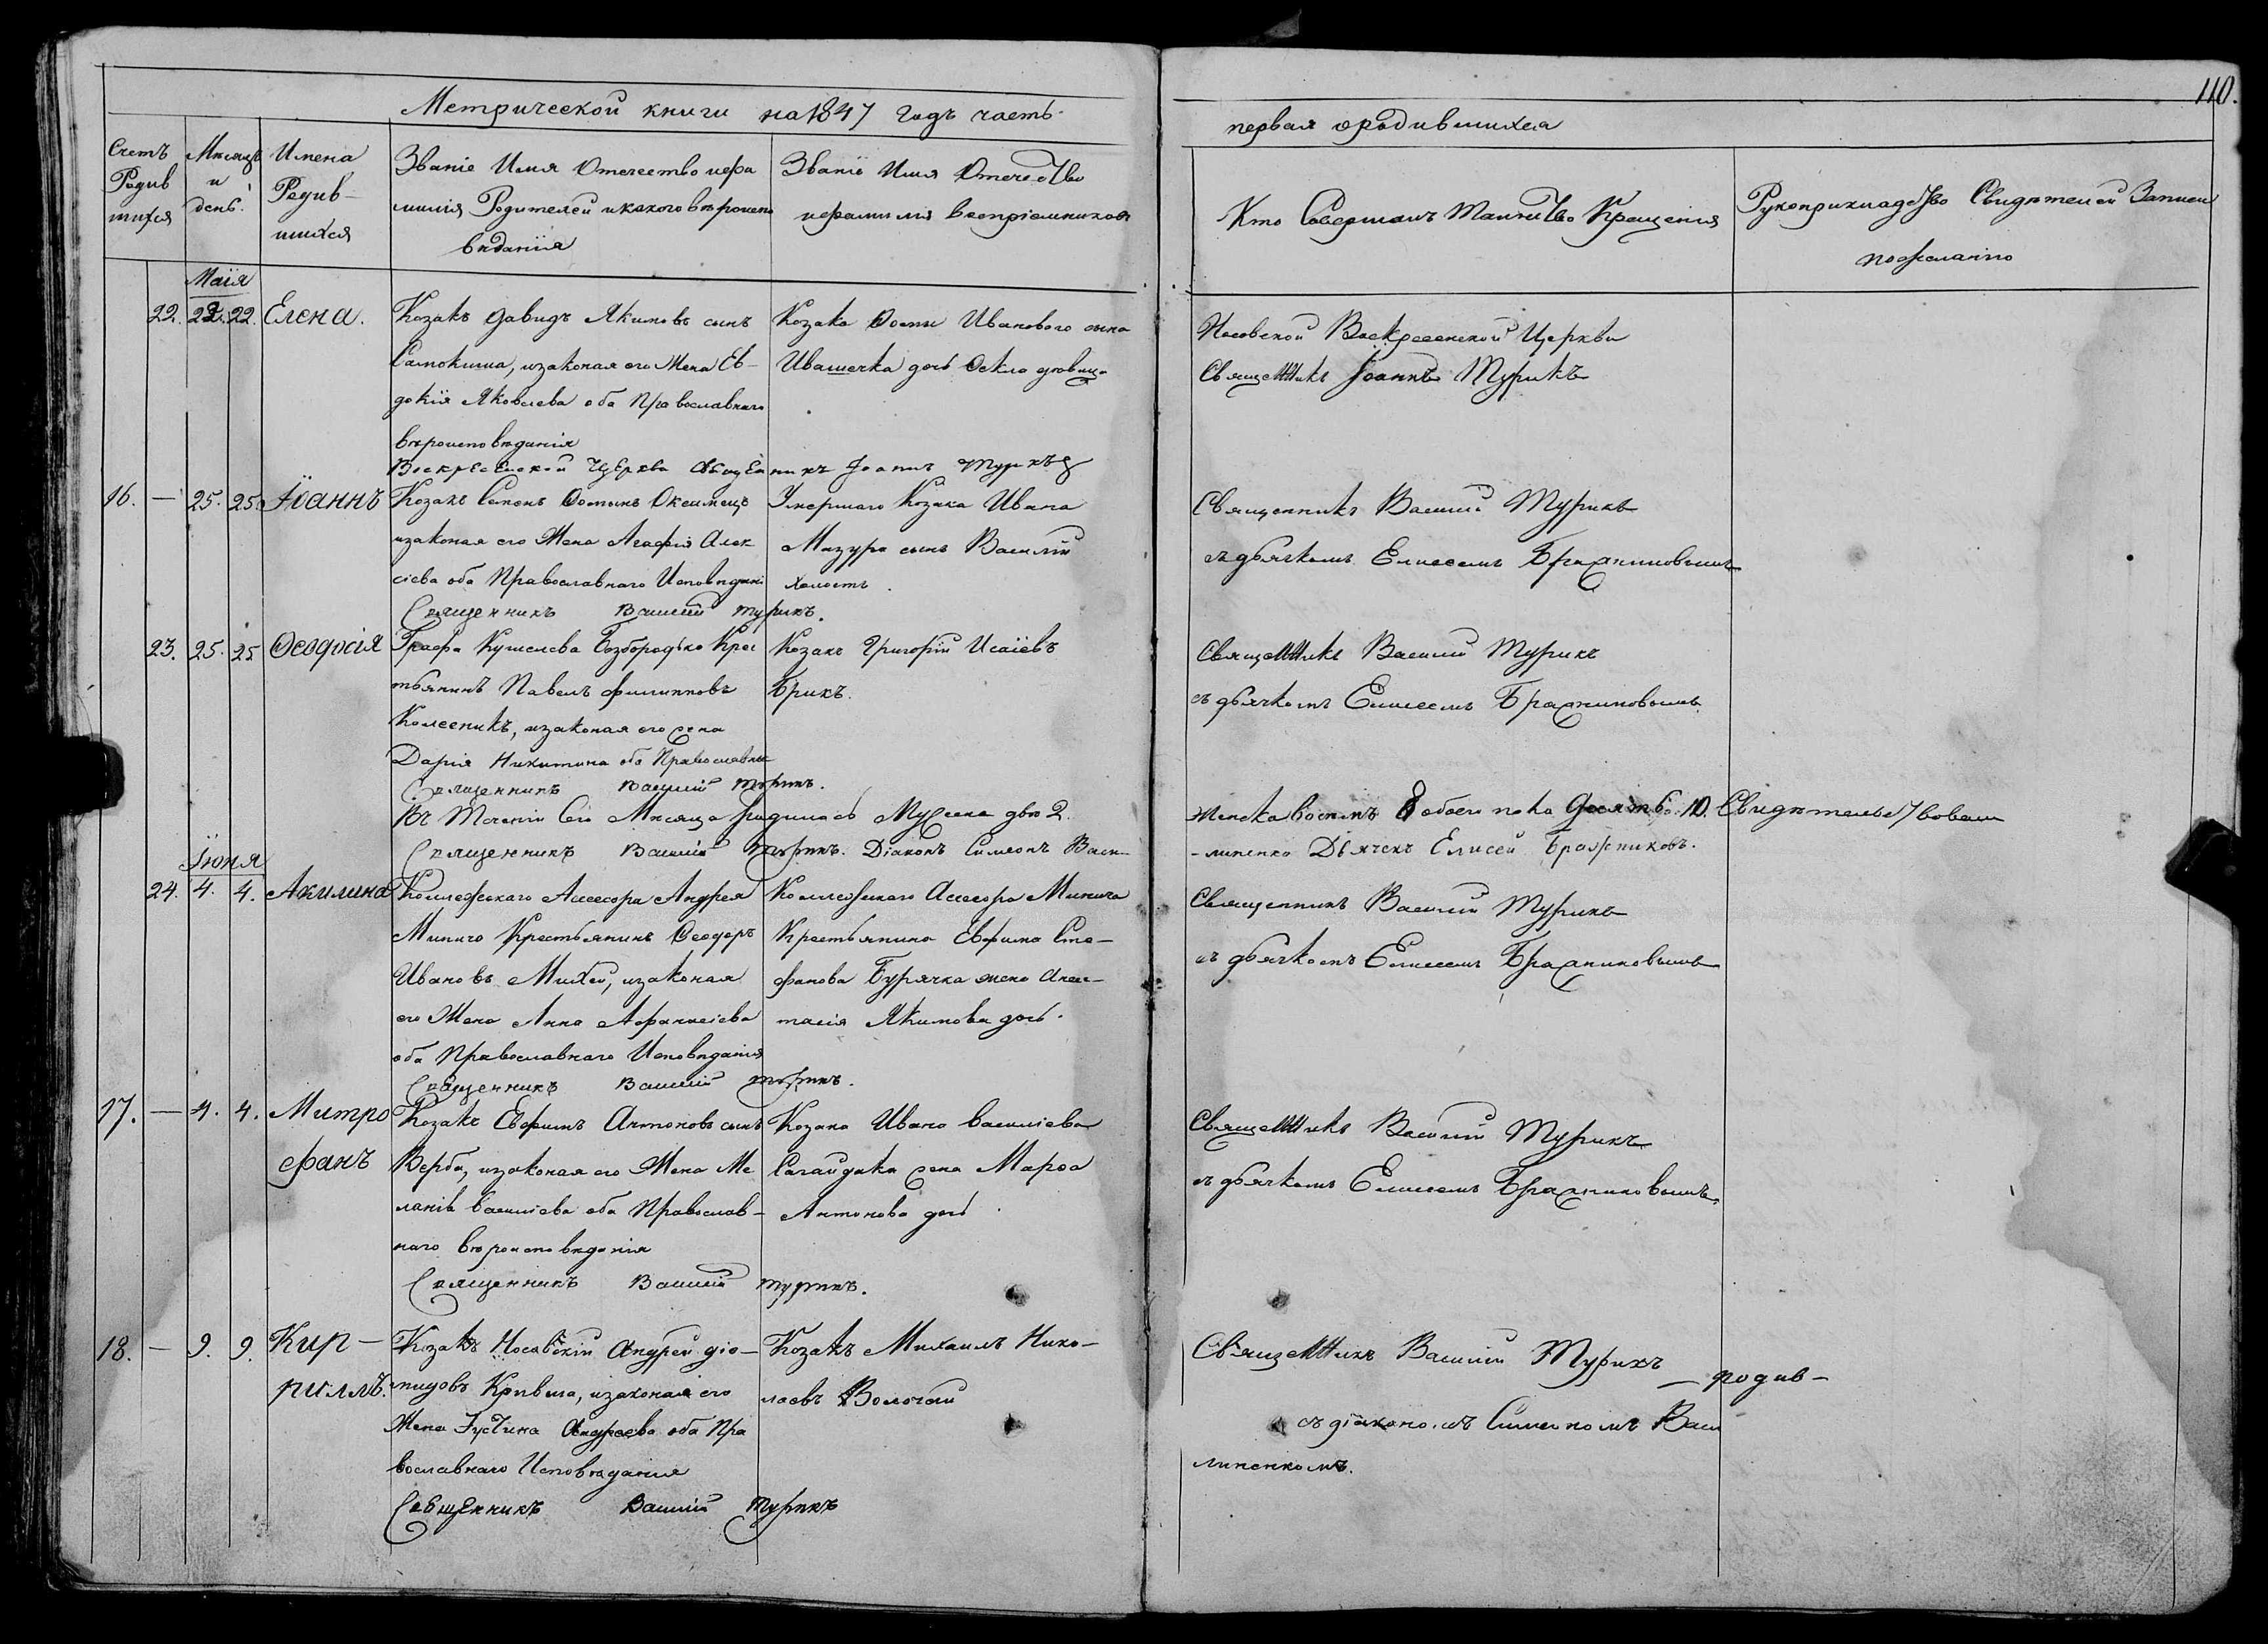 110.
Метрической книги на 1847 годъ часть
первая о родившихся
Счетъ Родив шихся
Мѣсяцъ и день.
Имена Родив- шихся
Званіе Имя Отечество ифа
милія Родителей и какого вѣроиспо
вѣданія
Званіе Имя Отечество
ифамилія воспріемниковъ
Кто Совершалъ Таинство Крещенія
Рукоприкладство Свидѣтелей Записи
по желанію
Маія
22. 22. 22. Елена.
Козакъ Давидъ Якимовъ сынъ
изаконая его Жена Ев-
докія Яковлева оба Православнаго
вѣроисповѣданія
Козака Ѳомы Иванового сына
Ивашечка дочь Ѳекла дѣвица
Носовской Воскресенской Церкви
Священникъ Іоаннъ Турикъ
Воскресенской Церкви Священикъ Іоаннъ Турикъ
16. — 25. 25. Іоаннъ
Козакъ Семенъ Ѳоминъ
изаконая его Жена Агафія Алек
сіева оба Православнаго Исповѣдані
Умершаго Козака Ивана
Мазура сынъ Василій
холостъ.
Священникъ Василій Турикъ
съ дьячкомъ Елисеемъ Бражниковымъ
Священникъ Василій Турикъ.
23. 25. 25 Ѳеодосія
Графа Кушелева Безбородько Крес
тьянинъ Павелъ Филипповъ
Колесникъ, изаконая его жена
Дарія Никитина оба Православные
Козакъ Григорій Исаіевъ
Брикъ.
Священникъ Василій Турикъ
съ дьячкомъ Елисеемъ Бражниковымъ.
Священникъ Василій Турикъ.
Въ Теченіи Сего Мѣсяца родилось Мужеска двѣ 2. Женска восемъ 8 обоего пола десять 10. Свидѣтельствовали
Священникъ Василій Турикъ. Діаконъ Симеонъ Васи- -линенко Дьячекъ Елисей Бражниковъ.
Іюня
24. 4. 4. Акилина
Коллежскаго Ассесора Андрея
Минича Крестьянинъ Ѳеодоръ
Ивановъ Михей, изаконая
его Жена Анна Афанасіева
оба Православнаго Исповѣданія
Коллежскаго Асесора Минича
Крестьянина Евфима Сте-
фанова Бурячка жена Анас-
тасія Якимова дочь.
Священникъ Василій Турикъ
съ дьячкомъ Елисеемъ Бражниковымъ
Священникъ Василій Турикъ.
17. — 4. 4. Митро
фанъ
Козакъ Евфимъ Антоновъ сынъ
Верба, изаконая его Жена Ме
ланія Василіева оба Православ-
наго вѣроисповѣданія
Козака Ивана Василіева
Сагайдака жена Марѳа
Антонова дочь
Священникъ Василій Турикъ
съ дьячкомъ Елисеемъ Бражниковымъ.
Священникъ Василій Турикъ.
18. — 9. 9. Кир-
риллъ.
Козакъ Носовскій Андрей Діо-
мидовъ изаконая его
Жена Іустина Андреева оба Пра
вославнаго Исповѣданія
Козакъ Михаилъ Нико-
лаевъ Волочай
Священникъ Василій Турикъ
— родив —
съ діакономъ Симеономъ Васи
линенкомъ.
Священникъ Василій Турикъ